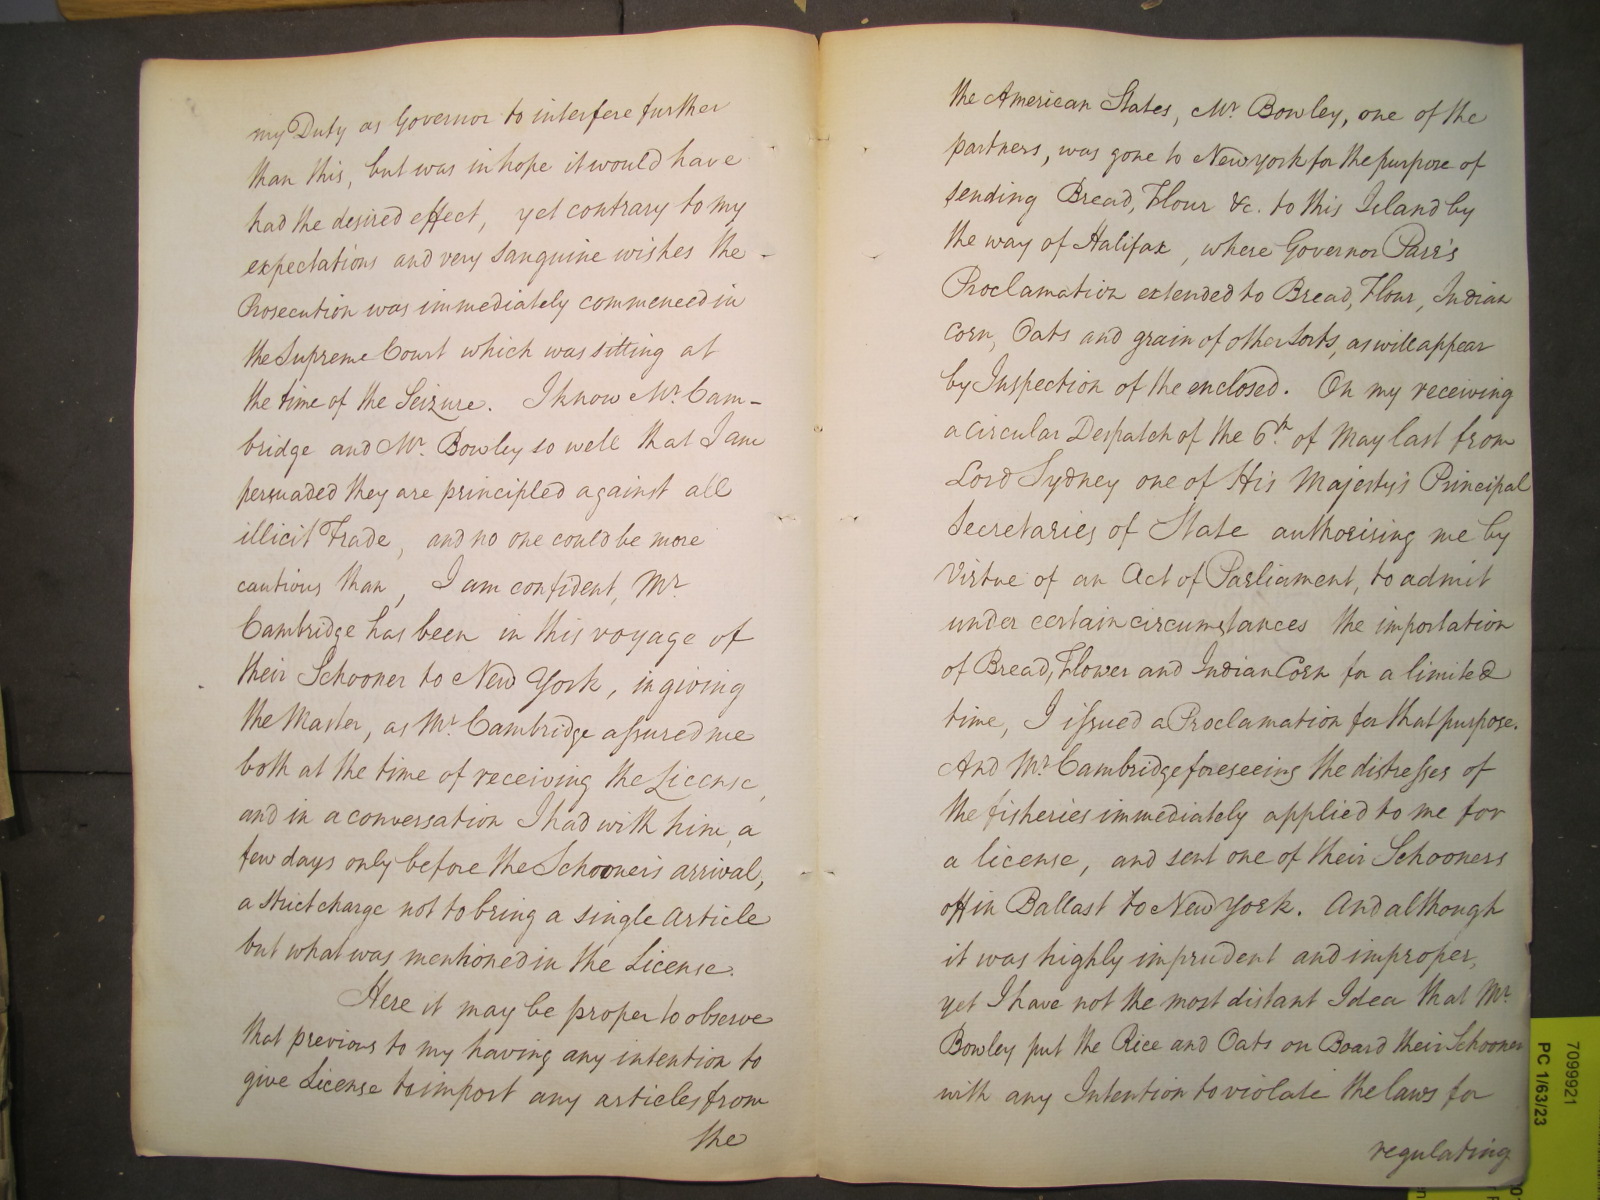 my Duty as Governor to interfere further
than this, but was in hope it would have
had the desired effect, yet contrary to my
expectations and very sanguine wishes the -
Prosecution was immediately commenced in
the Supreme Court which was sitting at
the time of the Seizure. I know Mr. Cam-
bridge and Mr. Bowley so well that I am
persuaded they are principled against all
illicit Trade, and no one could be more
cautious than, I am confident, Mr.
Cambridge has been in this voyage of
their Schooner to New York, in giving
the Master, as Mr. Cambridge assured me
both at the time of receiving the License,
and in a conversation I had with him, a
few days only before the Schooner's arrival,
a strict charge not to bring a single article
but what was mentioned in the License.
Here it may be proper to observe
that previous to my having any intention to
give License to import any articles from
the
the American States, Mr. Bowley, one of the
partners, was gone to New york for the purpose of
sending Bread, Flour &c. to this Island by
the way of Halifax, where Governor Parr's
Proclamation extended to Bread, Flour, Indian
Corn, Oats and grain of other sorts, as will appear
by Inspection of the enclosed. On my receiving
a circular Despatch of the 6th. of May last from
Lord Sydney one of His Majesty's Principal
Secretaries of State authorising me by
Virtue of an Act of Parliament, to admit
under certain circumstances the importation
of Bread, Flower and Indian Corn for a limited
time, I issued a Proclamation for that purpose.
And Mr. Cambridge foreseeing the distresses of
the fisheries immediately applied to me for
a license, and sent one of their Schooners
off in Ballast to New York. And although
it was highly imprudent and improper,
yet I have not the most distant Idea that Mr.
Bowley put the Rice and Oats on Board their Schooner
with any Intention to violate the laws for
regulating
7099921
PC 1/63/23